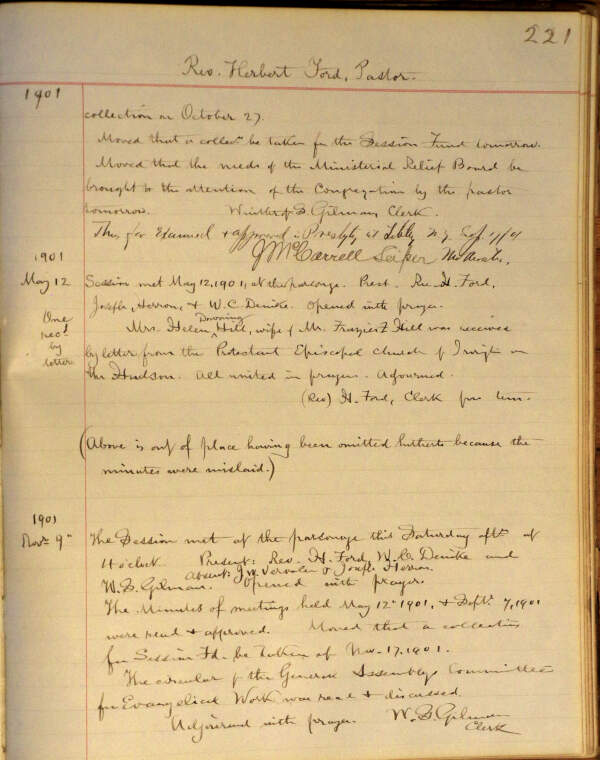 221
Rev. Herbert Ford, Pastor.
1901
collection on October 27.
Moved that a collecn be taken for the Session Fund tomorrow.
Moved that the needs of the Ministerial Relief Board be
brought to the attention of the Congregation by the pastor
tomorrow. Winthrop S. Gilman, Clerk.
Thus far Examined & approved in Presbty at
J McCarrell Leiper Moderator.
1901
May 12
Session met May 12, 1901, at the parsonage. Pres't. Rev. H. Ford,
Joseph Herron, & W. C. Denike. Opened with prayer.
One rec'd by letter
Downing
Mrs. Helen Hill, wife of Mr. Frazier Z Hill was received
by letter from the Protestant Episcopal church of Irvington on
the Hudson. All united in prayer. Adjourned.
(Rev) H. Ford, Clerk pro tem.
(Above is out of place having been omitted hitherto because the
minutes were mislaid.)
1901
Nov. 9th
The Session met at the parsonage this Saturday aftn at
4 o'clock. Present: Rev. H. Ford, W. C. Denike and
Absent: J. W. Vervalen & Joseph Herron.
W. S. Gilman. Opened with prayer.
The Minutes of meetings held May 12th 1901, & Sept. 7, 1901
were read & approved. Moved that a collection
for Session Fd. be taken at Nov. 17, 1901.
The circular of the General Assembly's Committee
for Evangelical Work was read & discussed.
Adjourned with prayer. W. S. Gilman
Clerk